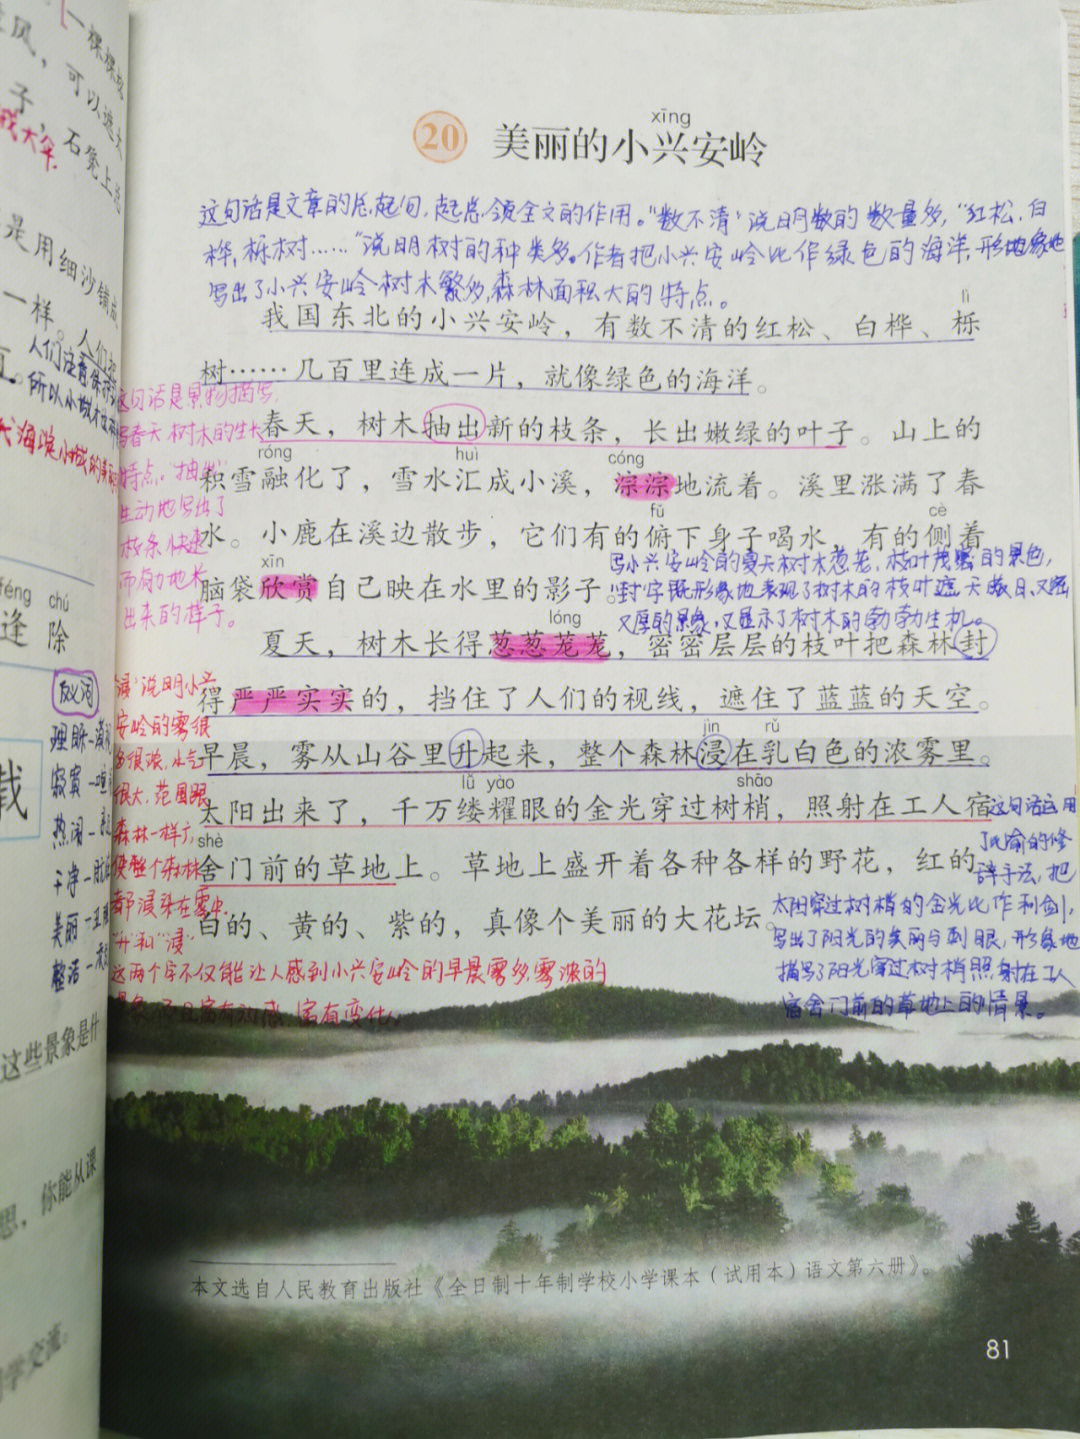 一棵棵
风，可以遮太
子，石凳上总
是用细沙铺成
一样。人们把
人们注意保护
所以小城才这
海滨小城的美
féng chú
逢 除
反义词
理睬
寂寞
热闹
干净
美丽
整洁
载
这些景象是什
思，你能从课
学交流。
xīng
20 美丽的小兴安岭
这句话是文章的总起句，起总领全文的作用。“数不清”说明树的数量多，“红松、白
桦、栎树……”说明树的种类多。作者把小兴安岭比作绿色的海洋，形象地
写出了小兴安岭树木繁多，森林面积大的特点。
lì
我国东北的小兴安岭，有数不清的红松、白桦、栎
树……几百里连成一片，就像绿色的海洋。
这句话是景物描写，
写春天树木的生长
特点。“抽出”
生动地写出了
枝条快速
而有力地长
出来的样子。
春天，树木抽出新的枝条，长出嫩绿的叶子。山上的
róng huì cóng
积雪融化了，雪水汇成小溪，淙淙地流着。溪里涨满了春
fǔ cè
水。小鹿在溪边散步，它们有的俯下身子喝水，有的侧着
xīn
脑袋欣赏自己映在水里的影子。
写小兴安岭的夏天树木葱茏，枝叶茂密的景色，
“封”字既形象地表现了树木的枝叶遮天蔽日，又密
又厚的景象，又显示了树木的勃勃生机。
lóng
夏天，树木长得葱葱茏茏，密密层层的枝叶把森林封
得严严实实的，挡住了人们的视线，遮住了蓝蓝的天空。
jìn rǔ
早晨，雾从山谷里升起来，整个森林浸在乳白色的浓雾里。
lǚ yào shāo
太阳出来了，千万缕耀眼的金光穿过树梢，照射在工人宿
shè
舍门前的草地上。草地上盛开着各种各样的野花，红的、
白的、黄的、紫的，真像个美丽的大花坛。
“浸”说明小兴
安岭的雾很
多很浓，水气
很大，范围跟
森林一样广，
使整个森林
都浸染在雾中。
“升”和“浸”
这两个字不仅能让人感到小兴安岭的早晨雾多，雾浓的
景象，而且富有动感，富有变化。
这句话运用
了比喻的修
辞手法，把
太阳穿过树梢的金光比作利剑，
写出了阳光的美丽与刺眼，形象地
描写了阳光穿过树梢照射在工人
宿舍门前的草地上的情景。
本文选自人民教育出版社《全日制十年制学校小学课本（试用本）语文第六册》。
81